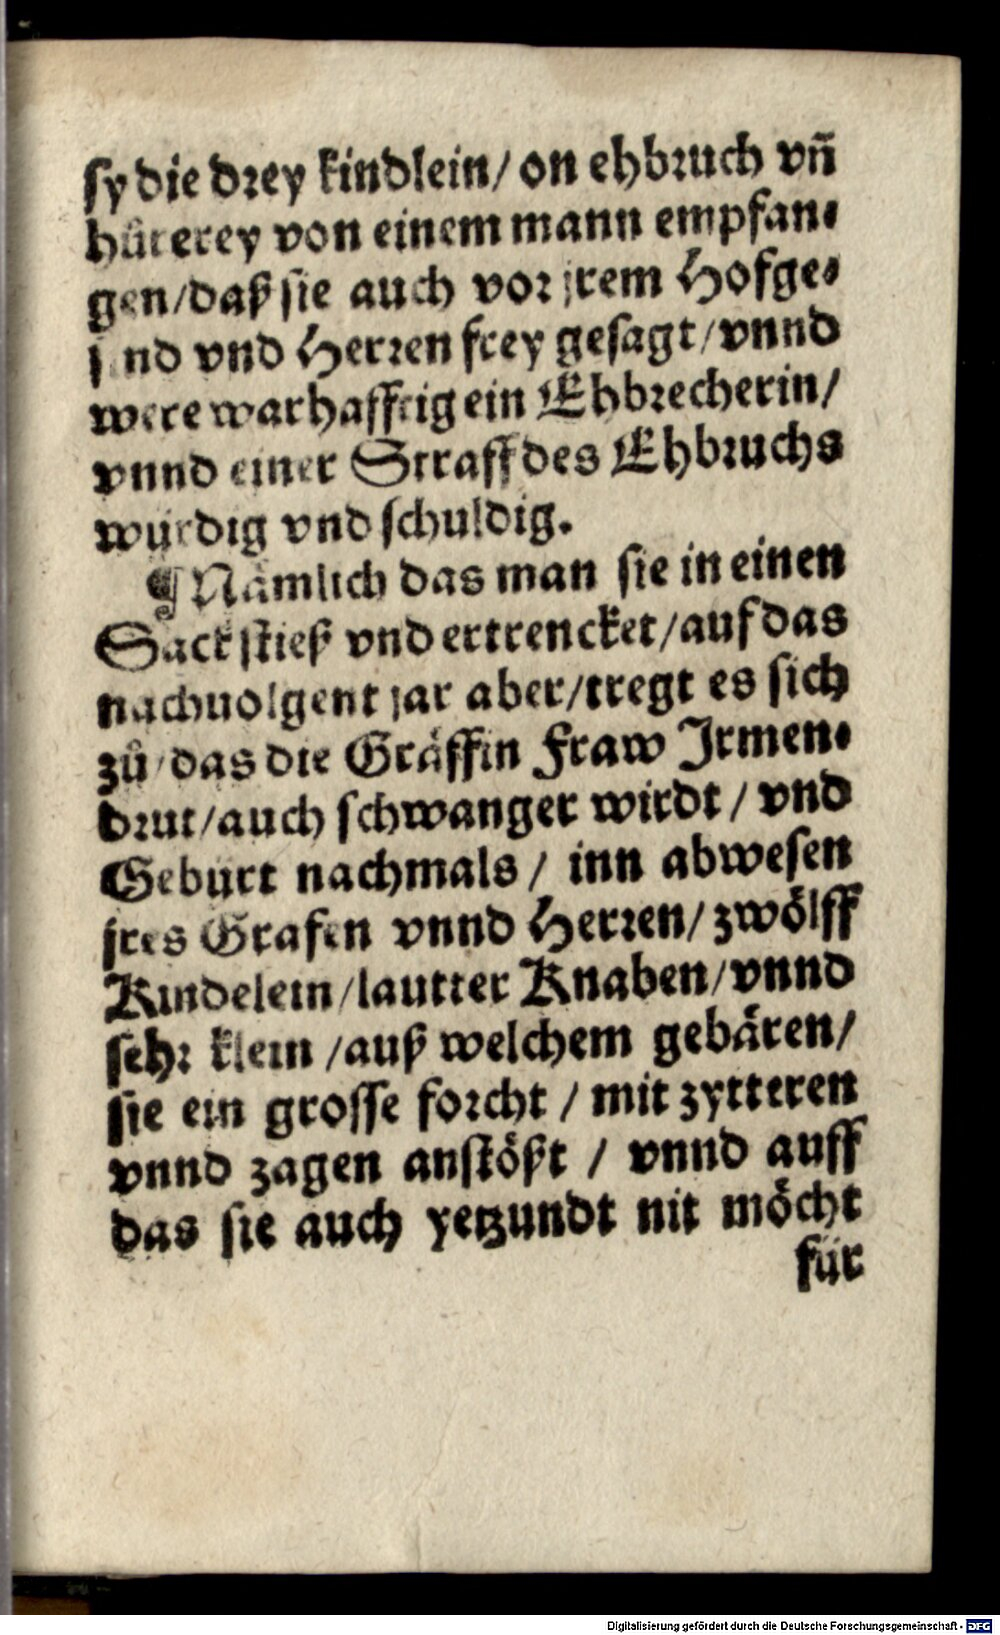 sy die drey kindlein/ on ehbruch vñ
hůrerey von einem mann empfan⸗
gen/daß sie auch vor jrem Hofge⸗
sind vnd Herren frey gesagt/vnnd
were warhafftig ein Ehbrecherin/
vnnd einer Straff des Ehbruchs
würdig vnd schuldig.
¶ Nämlich das man sie in einen
Sack stieß vnd ertrencket/auf das
nachuolgent jar aber/tregt es sich
zů/das die Gräffin Fraw Irmen⸗
drut/auch schwanger wirdt/ vnd
Geburt nachmals/ inn abwesen
jres Grafen vnnd Herren/ zwölff
Kindelein/lautter Knaben/vnnd
sehr klein/auß welchem gebären/
sie ein grosse forcht/ mit zytteren
vnnd zagen anstößt/ vnnd auff
das sie auch yetzundt nit möcht
für
Digitalisierung gefördert durch die Deutsche Forschungsgemeinschaft - DFG